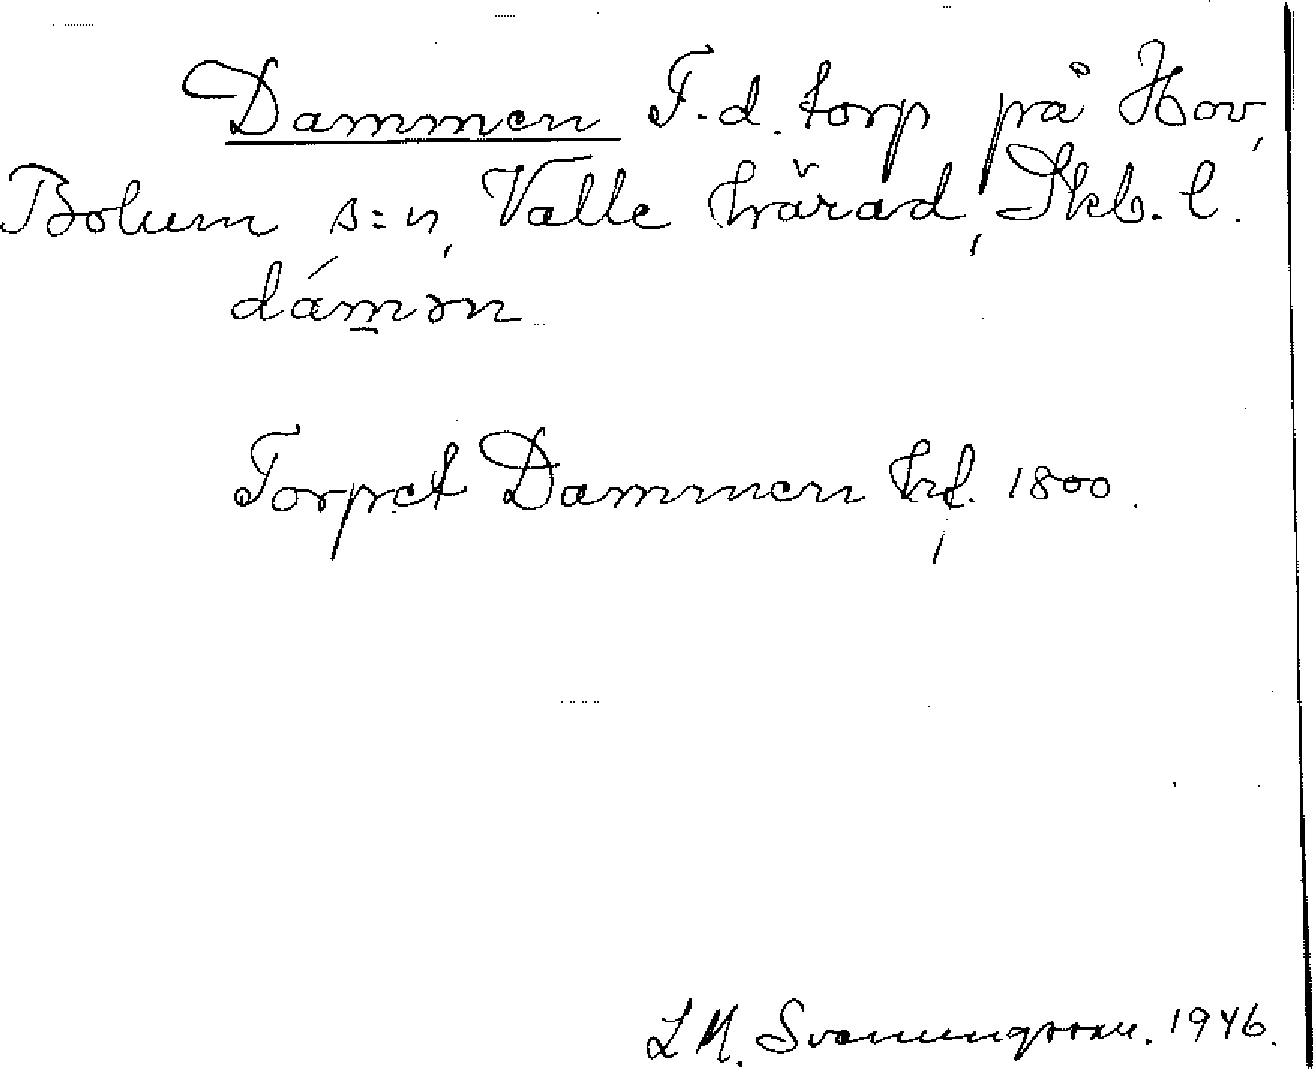 Dammen F.d. torp på Hov,
Bolum s:n, Valle härad, Skb. l.
dámən
Torpet Dammen hfl. 1800.
L M. Svanungsson. 1946.